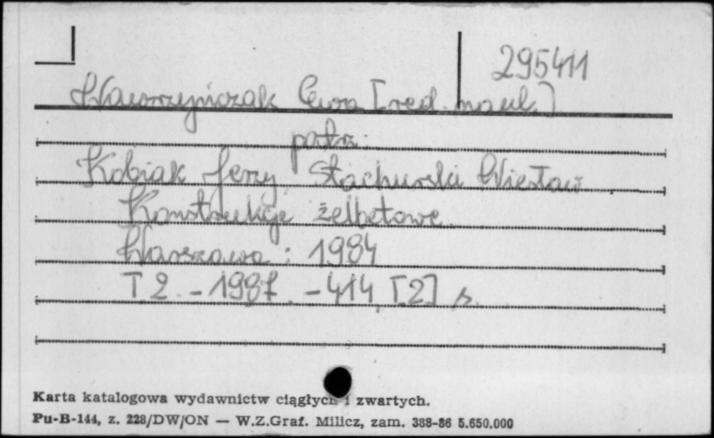 295411
Wawrzyńczak Ewa [red. nauk.]
patrz:
Kobiak Jerzy, Stachurski Wiesław
Konstrukcje żelbetowe
Warszawa : 1984
T 2. - 1987. - 414, [2] s.
Karta katalogowa wydawnictw ciągłych i zwartych.
Pu-B-144, z. 228/DW/ON — W.Z.Graf. Milicz, zam. 388-86 5.650.000